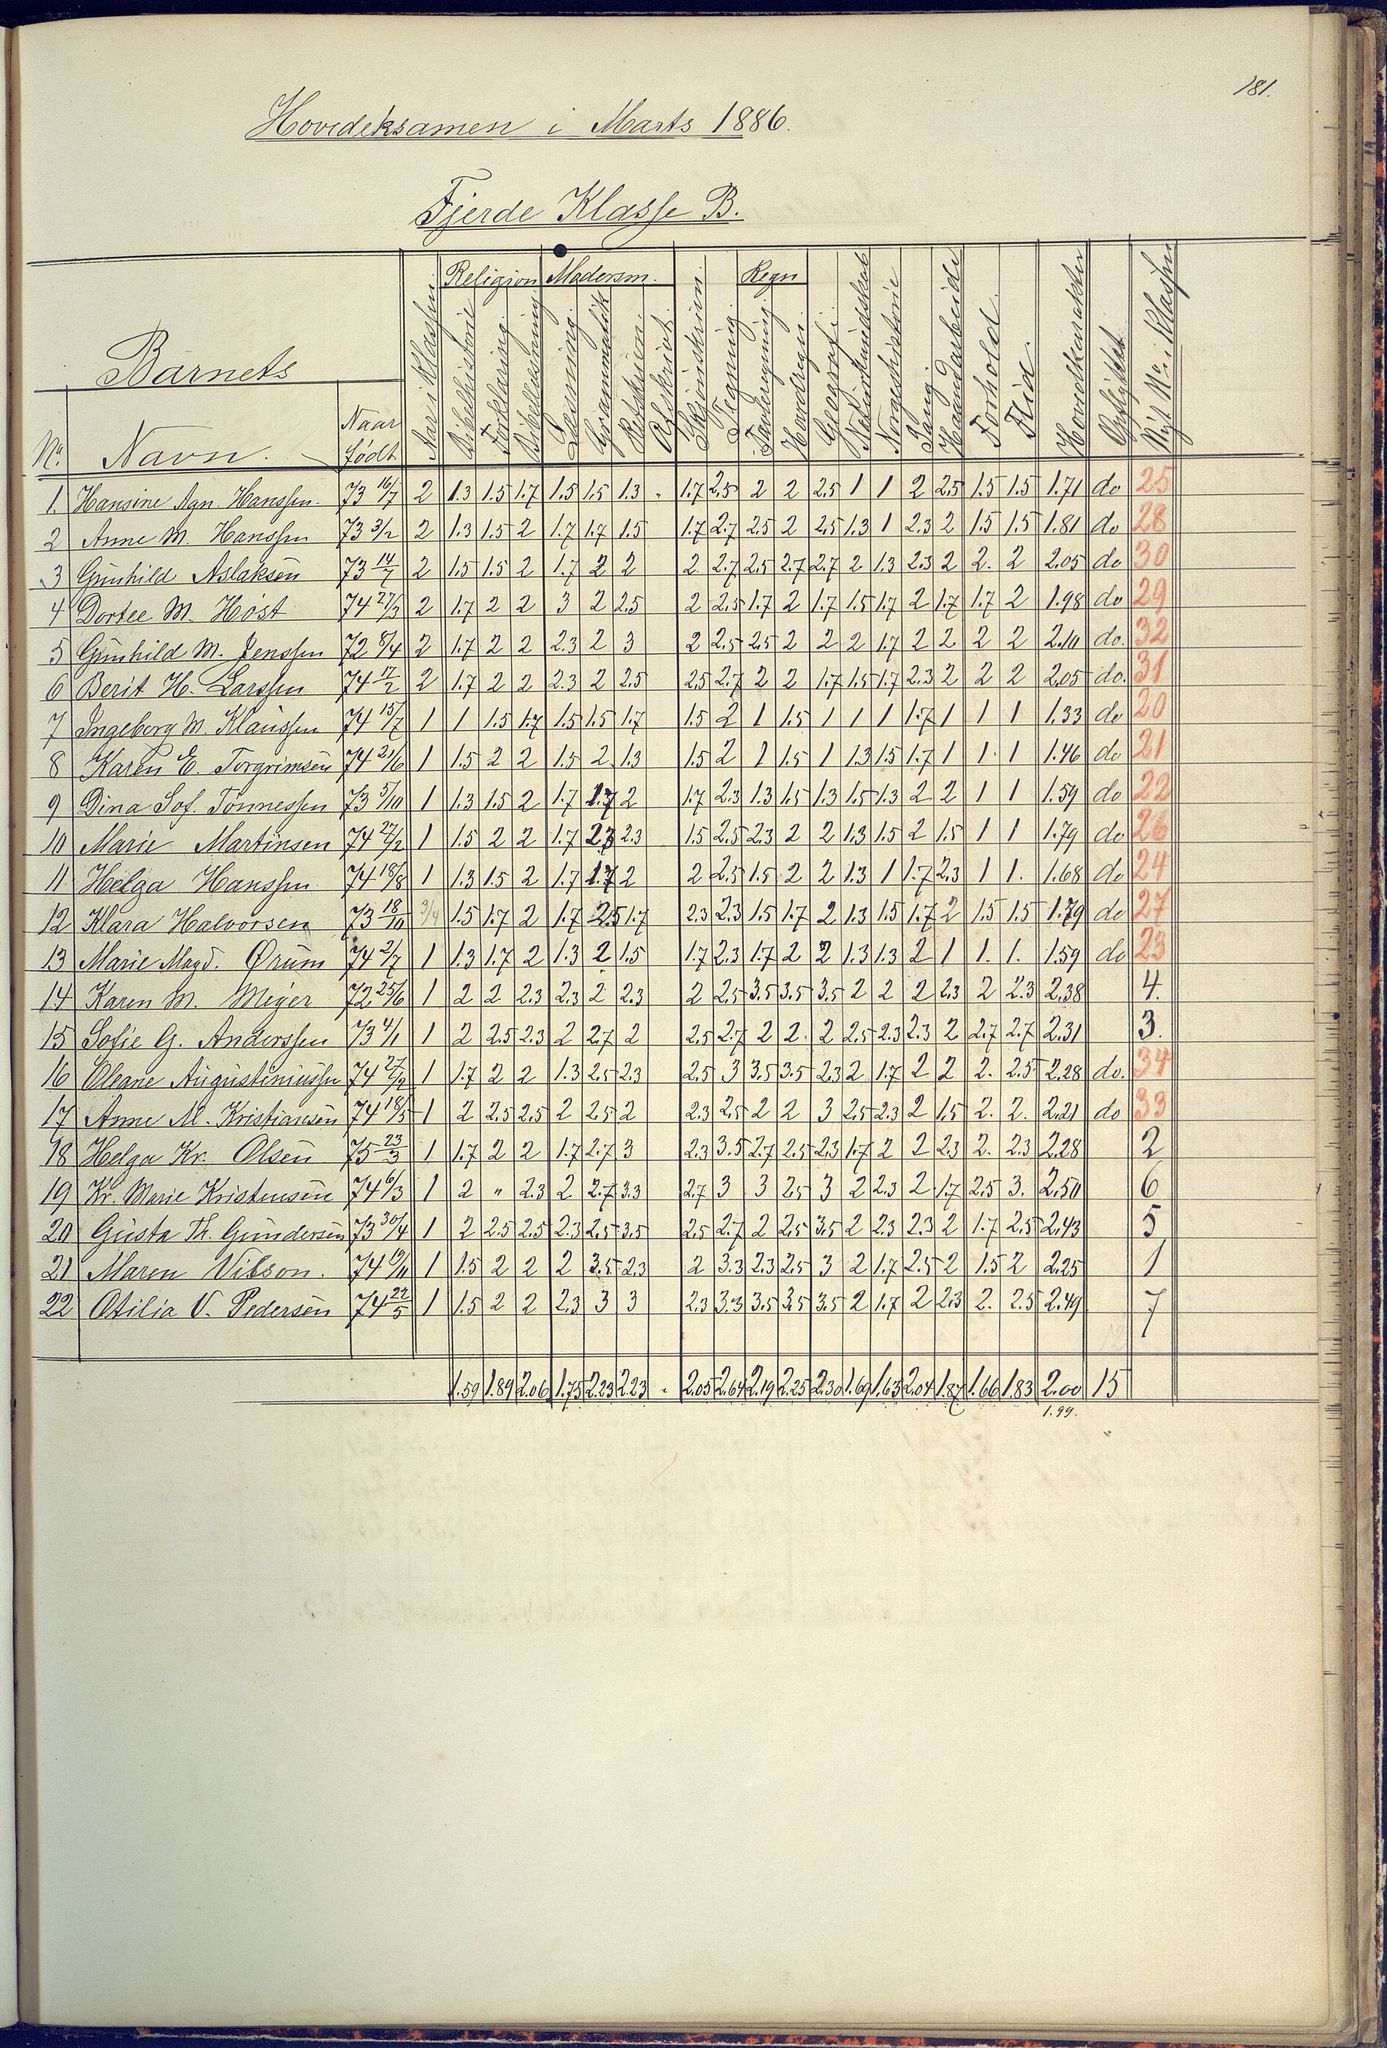 181.
Hovedeksamen i Marts 1886.
Fjerde Klasse B.
Religion Modersm. Regn
Barnets
No. Navn. Naar født Aar i Klassen Bibelhistorie Forklaring Bibellæsning Læsning Grammatik Retskrivn. Afskrivt. Skjønskrivn. Tegning. Tavleregning. Hovedregn. Geografi. Naturkundskab Norgeshistorie Sang. Haandarbeide Forhold. Flid. Hovedkarakter Opflyttet Nyt No. i Klassen
1. Hansine Agn. Hanssen. 73 16/7 2 1.3 1.5 1.7 1.5 1.5 1.3 " 1.7 2.5 2 2 2.5 1 1 2 2.5 1.5 1.5 1.71 do 25
2 Anne M. Hanssen 73 3/2 2 1.3 1.5 2 1.7 1.7 1.5 1.7 2.7 2.5 2 2.5 1.3 1 2.3 2 1.5 1.5 1.81 do 28
3 Gunhild Aslaksen 73 14/7 2 1.5 1.5 2 1.7 2 2 2 2.7 2.5 2.7 2.7 2 1.3 2.3 2 2. 2 2.05 do 30
4 Dortee M. Høst 74 27/3 2 1.7 2 2 3 2 2.5 2 2.5 1.7 2 1.7 1.5 1.7 2 1.7 1.7 2 1.98 do 29
5 Gunhild M. Jenssen 72 8/4 2 1.7 2 2 2.3 2 3 2 2.5 2.5 2 2 2 1.7 2 2 2 2 2.10 do. 32
6 Berit H. Larssen 74 17/2 2 1.7 2 2 2.3 2 2.5 2.5 2.7 2 2 1.7 1.5 1.7 2.3 2 2 2 2.05 do. 31
7 Ingeborg M. Klaussen 74 15/7 1 1 1.5 1.7 1.5 1.5 1.7 1.5 2 1 1.5 1 1 1 1.7 1 1 1 1.33 do 20
8 Karen E. Torgrimsen 74 21/6 1 1.5 2 2 1.5 2 1.3 1.5 2 1 1.5 1 1.3 1.5 1.7 1 1 1 1.46 do 21
9 Dina Sof. Tønnessen 73 5/10 1 1.3 1.5 2 1.7 1.7 2 1.7 2.3 1.3 1.5 1.3 1.5 1.3 2 2 1 1 1.59 do 22
10 Marie Martinsen 74 27/2 1 1.5 2 2 1.7 2.3 2.3 1.5 2.5 2.3 2 2 1.3 1.5 2 1.5 1 1 1.79 do 26
11 Helga Hanssen. 74 18/8 1 1.3 1.5 2 1.7 1.7 2 2 2.5 1.5 2 2 1.3 1 1.7 2.3 1 1. 1.68 do 24
12 Klara Halvorsen 73 18/10 3/4 1.5 1.7 2 1.7 2.5 1.7 2.3 2.3 1.5 1.7 2 1.3 1.5 1.7 2 1.5 1.5 1.79 do 27
13 Marie Magd. Ørum 74 2/7 1 1.3 1.7 2 1.3 2 1.5 1.7 2.3 1.7 2 2 1.3 1.3 2 1 1. 1. 1.59 do 23
14 Karen M. Meyer 72 25/6 1 2 2 2.3 2.3 2 2.3 2 2.5 3.5 3.5 3.5 2 2 2 2.3 2 2.3 2.38 4.
15 Sofie G. Anderssen 73 4/1 1 2 2.5 2.3 2 2.7 2 2.5 2.7 2 2. 2 2.5 2.3 2.3 2 2.7 2.7 2.31 3.
16 Oleane Augustiniussen 74 27/2 1 1.7 2 2 1.3 2.5 2.3 2.5 3 3.5 3.5 2.3 2 1.7 2 2 2. 2.5 2.28 do. 34
17 Anne M. Kristiansen 74 18/5 1 2 2.5 2.5 2 2.5 2 2.3 2.5 2 2 3 2.5 2.3 2 1.5 2. 2. 2.21 do 33
18 Helga Kr. Olsen 75 23/3 1 1.7 2 2 1.7 2.7 3 2.3 3.5 2.7 2.5 2.3 1.7 2 2 2.3 2. 2.3 2.28 2
19 Kr. Marie Kristensen 74 6/3 1 2 " 2.3 2 2.7 3.3 2.7 3 3 2.5 3 2 2.3 2 1.7 2.5 3. 2.50 6
20 Gusta Th. Gundersen 73 30/4 1 2 2.5 2.5 2.3 2.5 3.5 2.5 2.7 2 2.5 3.5 2 2.3 2.3 2 1.7 2.5 2.43 5
21 Maren Vibson. 74 19/11 1 1.5 2 2 2 3.5 2.3 2 3.3 2.3 2.5 3 2 1.7 2.5 2 1.5 2 2.25 1
22 Otilia V. Pedersen 74 22/5 1 1.5 2 2 2.3 3 3 2.3 3.3 3.5 3.5 3.5 2 1.7 2 2.3 2. 2.5 2.49 7
1.59 1.89 2.06 1.75 2.23 2.23 " 2.05 2.64 2.19 2.25 2.30 1.69 1.63 2.04 1.87 1.66 1.83 2.00 15
1.99.